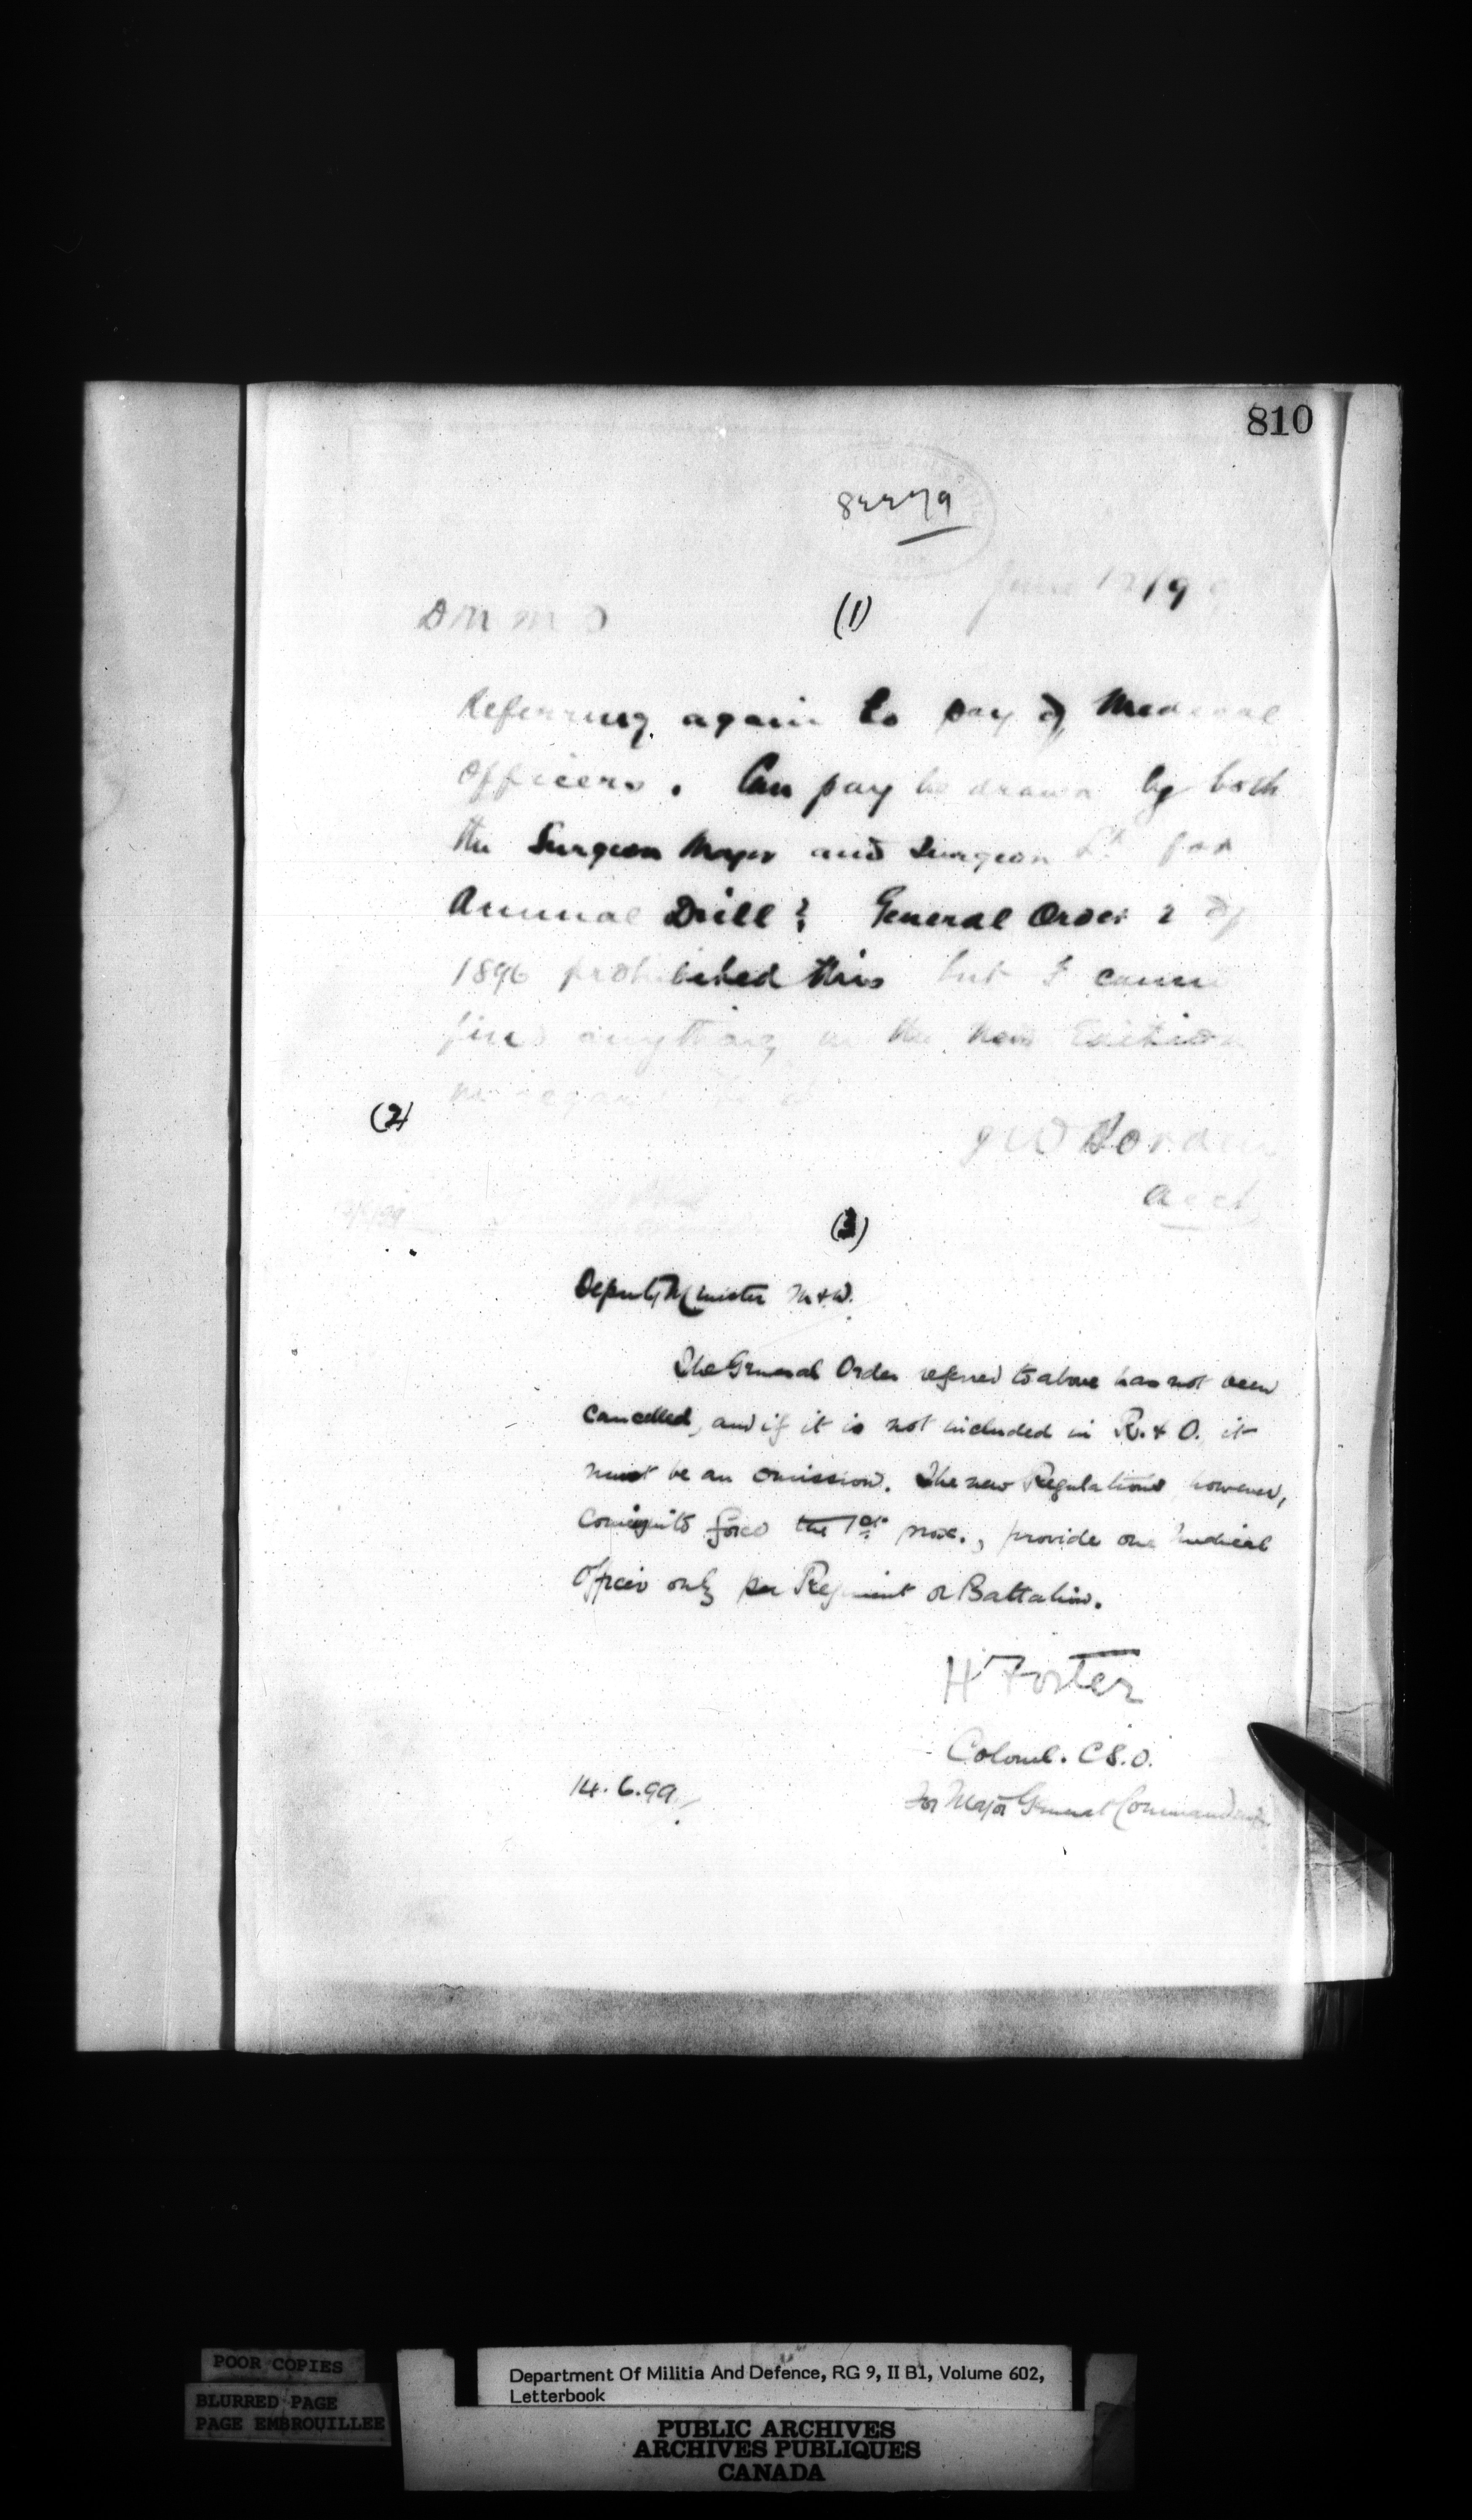 810
82279
June 12/99
D M M D
(1)
Referring again to pay of Medical
Officers. Can pay be drawn by both
the Surgeon Major and Surgeon Lt for
Annual Drill? General Order 2 of
1896 prohibited this but I cannot
find anything in the new Edition
in regard to it
(2)
J W Borden
Acct
(3)
Deputy Minister M & D.
The General Order referred to above has not been
cancelled, and if it is not included in R. & O. it
must be an omission. The new Regulations however,
coming into force the 1st prox., provide one Medical
Officer only per Regiment or Battalion.
H Foster
Colonel. C S. O.
14. 6. 99
For Major General Commanding
POOR COPIES
BLURRED PAGE
PAGE EMBROUILLEE
Department Of Militia And Defence, RG 9, II B1, Volume 602,
Letterbook
PUBLIC ARCHIVES
ARCHIVES PUBLIQUES
CANADA